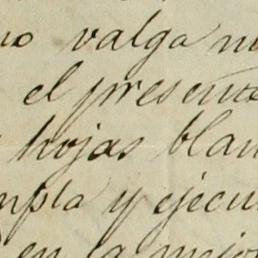 no valga n
el presen
hojas blan
mpla y ejecu
en la mejo